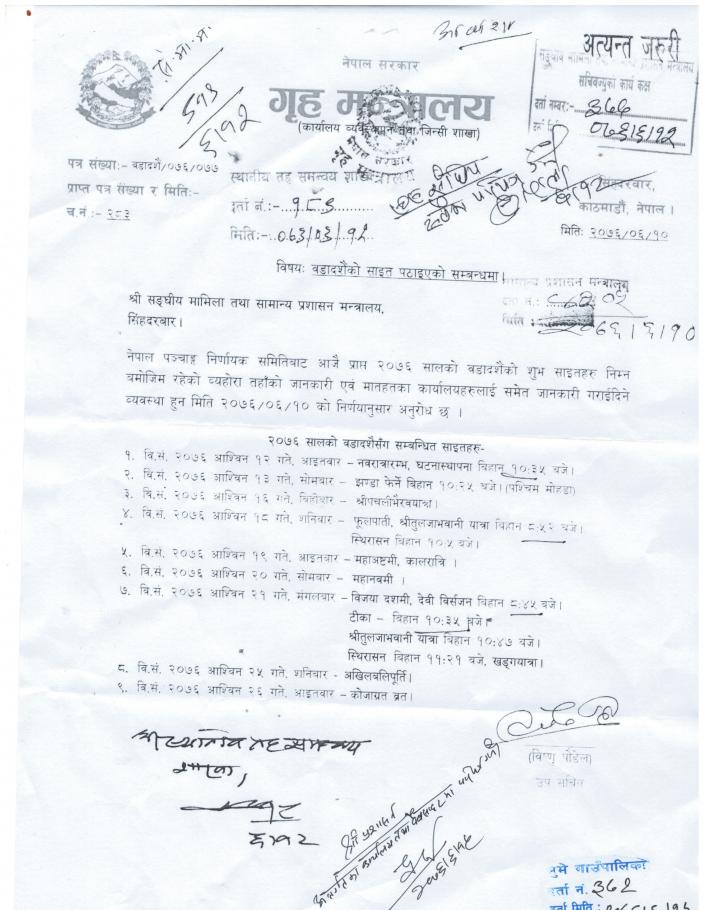 अत्यन्त जरुरी
सचिवज्यूको कार्य कक्ष
दर्ता नम्बर:- ३६६
०७६।६।१२
नेपाल सरकार
गृह मन्त्रालय
(कार्यालय व्यवस्थापन तथा जिन्सी शाखा)
पत्र संख्या:- बडादशै/०७६/०७७
प्राप्त पत्र संख्या र मिति:-
च.नं :- २८३
स्थानीय तह समन्वय शाखा
दर्ता नं.:-
मिति:-
सिंहदरबार,
काठमाडौं, नेपाल ।
मिति: २०७६/०६/१०
विषय: बडादशैंको साइत पठाइएको सम्बन्धमा।
सामान्य प्रशासन मन्त्रालय
श्री सङ्घीय मामिला तथा सामान्य प्रशासन मन्त्रालय,
सिंहदरबार।
मिति :
नेपाल पञ्चाङ्ग निर्णायक समितिबाट आजै प्राप्त २०७६ सालको बडादशैको शुभ साइतहरु निम्न
बमोजिम रहेको व्यहोरा तहाँको जानकारी एवं मातहतका कार्यालयहरुलाई समेत जानकारी गराईदिने
व्यवस्था हुन मिति २०७६/०६/१० को निर्णयानुसार अनुरोध छ ।
२०७६ सालको बडादशैसँग सम्बन्धित साइतहरु-
१. वि.सं. २०७६ आश्विन १२ गते, आइतवार – नवरात्रारम्भ, घटनास्थापना बिहान १०:३५ बजे।
२. वि.सं. २०७६ आश्विन १३ गते, सोमवार – झण्डा फेर्ने बिहान १०:२५ बजे। (पश्चिम मोहडा)
३. वि.सं. २०७६ आश्विन १६ गते, बिहीवार – श्रीपचलीभैरवयात्रा।
४. वि.सं. २०७६ आश्विन १८ गते, शनिवार – फूलपाती, श्रीतुलजाभवानी यात्रा बिहान ८:५२ बजे।
स्थिरासन बिहान १०:५ बजे।
५. वि.सं. २०७६ आश्विन १९ गते, आइतवार – महाअष्टमी, कालरात्रि ।
६. वि.सं. २०७६ आश्विन २० गते, सोमवार – महानवमी ।
७. वि.सं. २०७६ आश्विन २१ गते, मंगलवार – विजया दशमी, देवी विर्सजन बिहान ८:४५ बजे।
टीका – बिहान १०:३५ बजे।
श्रीतुलजाभवानी यात्रा बिहान १०:४७ बजे।
स्थिरासन बिहान ११:२१ बजे, खड्गयात्रा।
८. वि.सं. २०७६ आश्विन २५ गते, शनिवार - अखिलबलिपूर्ति।
९. वि.सं. २०७६ आश्विन २६ गते, आइतवार – कोजाग्रत व्रत।
श्री स्थानिय तह समन्वय
शाखा,
६।१२
(विष्णु पौडेल)
उप सचिव
गाउँपालिका
दर्ता नं. ३६२
दर्ता मिति :